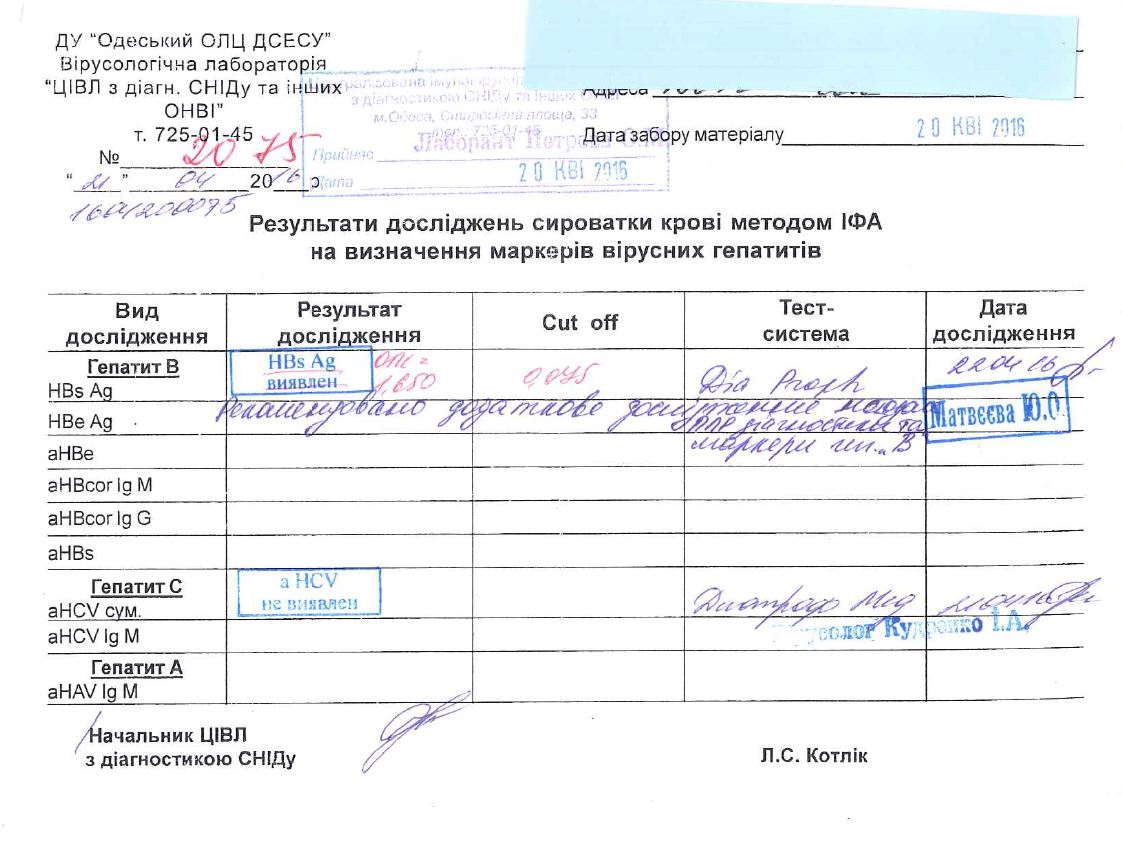 ДУ "Одеський ОЛЦ ДСЕСУ"
Вірусологічна лабораторія
"ЦІВЛ з діагн. СНІДу та інших
ОНВІ"
т. 725-01-45
№ 2075
"21" 04 2016 р
1604200075
з діагностикою СНІДу та інших
м.Одеса, Старосінна площа, 33
тел. 725-01-45
Лаборант
Прийняв
Дата 20 КВІ 2016
Адреса
Дата забору матеріалу 20 КВІ 2016
Результати досліджень сироватки крові методом ІФА
на визначення маркерів вірусних гепатитів
Вид дослідження
Результат дослідження
Cut off
Тест-система
Дата дослідження
Гепатит В
HBs Ag
HBs Ag
виявлен
ОПК =
1,650
0,075
Dia Proph
220416
HBe Ag
Рекомендовано додаткове дослідження
ПЛР діагностики та
маркери геп. В
Матвєєва Ю.О.
aHBe
aHBcor Ig M
aHBcor Ig G
aHBs
Гепатит С
aHCV сум.
a HCV
не виявлен
Диапроф Мед
aHCV Ig M
Вірусолог Кудренко І.А.
Гепатит А
aHAV Ig M
Начальник ЦІВЛ
з діагностикою СНІДу
Л.С. Котлік